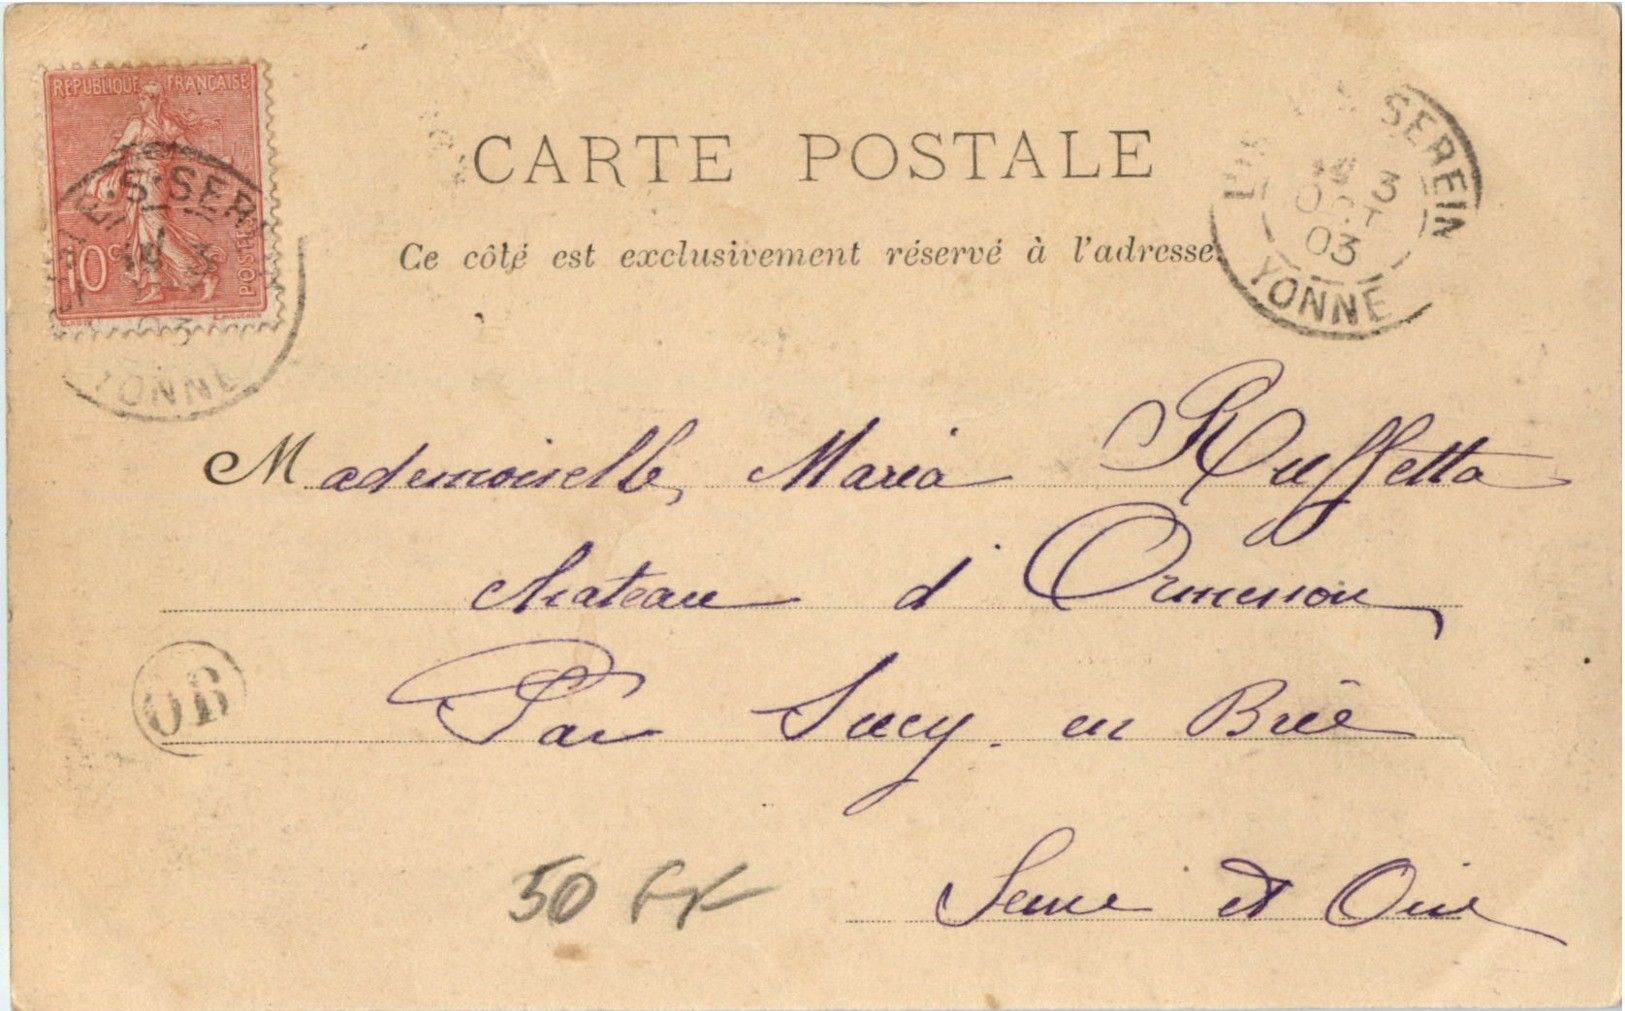 REPUBLIQUE FRANÇAISE
10
POSTES
S. SER
YONNE
CARTE POSTALE
Ce côté est exclusivement réservé à l'adresse.
SEREIN
3
OCT
03
YONNE
Mademoiselle Maria Ruffetta
chateau d'Ormesson
Par Sucy. en Brie
Seine et Oise
OB
50 FF